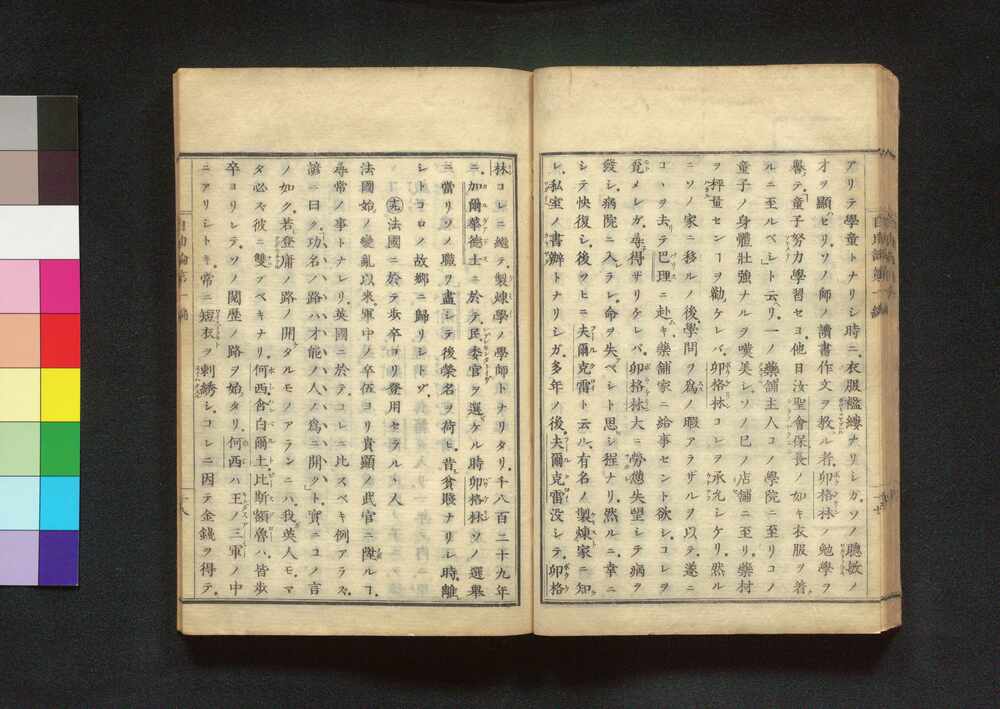 アリテ學童トナリシ時ニ衣服襤縷ナリシガソノ聰敏ノ
才ヲ顯セリソノ師ノ讀書作文ヲ教ル者卯格林ノ勉學ヲ
譽テ童子努力學習セヨ他日汝聖會保長ノ如キ衣服ヲ着
ルニ至ルベシト云リ一ノ藥舗主人コノ學院ニ至リコノ
童子ノ身體壯強ナルヲ嘆美シソノ己ノ店舗ニ至リ藥材
ヲ秤量センヿヲ勸ケレバ卯格林コレヲ承允シケリ然ル
ニソノ家ニ移ルノ後學問ヲ爲ノ暇アラザルヲ以テ遂ニ
コヽヲ去テ巴理ニ赴キ藥舗家ニ給事セント欲シコレヲ
覓メシガ尋得ザリケレバ卯格林大ニ勞憊失望シテ病ヲ
發シ病院ニ入ラレ命ヲ失ベシト思シ程ナリ然ルニ幸ニ
シテ快復シ後ツヒニ夫爾克雷ト云ル有名ノ製煉家ニ知
レ私室ノ書辦トナリシガ多年ノ後夫爾克雷没シテ卯格
林コレニ繼テ製煉學ノ學師トナリタリ千八百二十九年
ニ加爾華德士ニ於テ民委官ヲ選ケル時卯格林ソノ選舉
ニ當リソノ職ヲ盡シテ後榮名ヲ荷ヒ昔貧賤ナリシ時離
シトコロノ故郷ニ歸リシトゾ
十九 法國ニ於テ歩卒ヨリ登用セラルヽ人
法國始ノ變亂以來軍中ノ卒伍ヨリ貴顯ノ武官ニ陞ルヿ
尋常ノ事トナレリ英國ニ於テコレニ比スベキ例アラズ
諺ニ曰ク功名ノ路ハ才能ノ人ノ爲ニ開クト實ニコノ言
ノ如ク若登庸ノ路ノ開タルモノアランニハ我英人モマ
タ必ズ彼ニ雙ブベキナリ何西含白爾土比斯額魯ハ皆歩
卒ヨリシテソノ閲歴ノ路ヲ始タリ何西ハ王ノ三軍ノ中
ニアリシトキ常ニ短衣ヲ刺綉シコレニ因テ金錢ヲ得テ